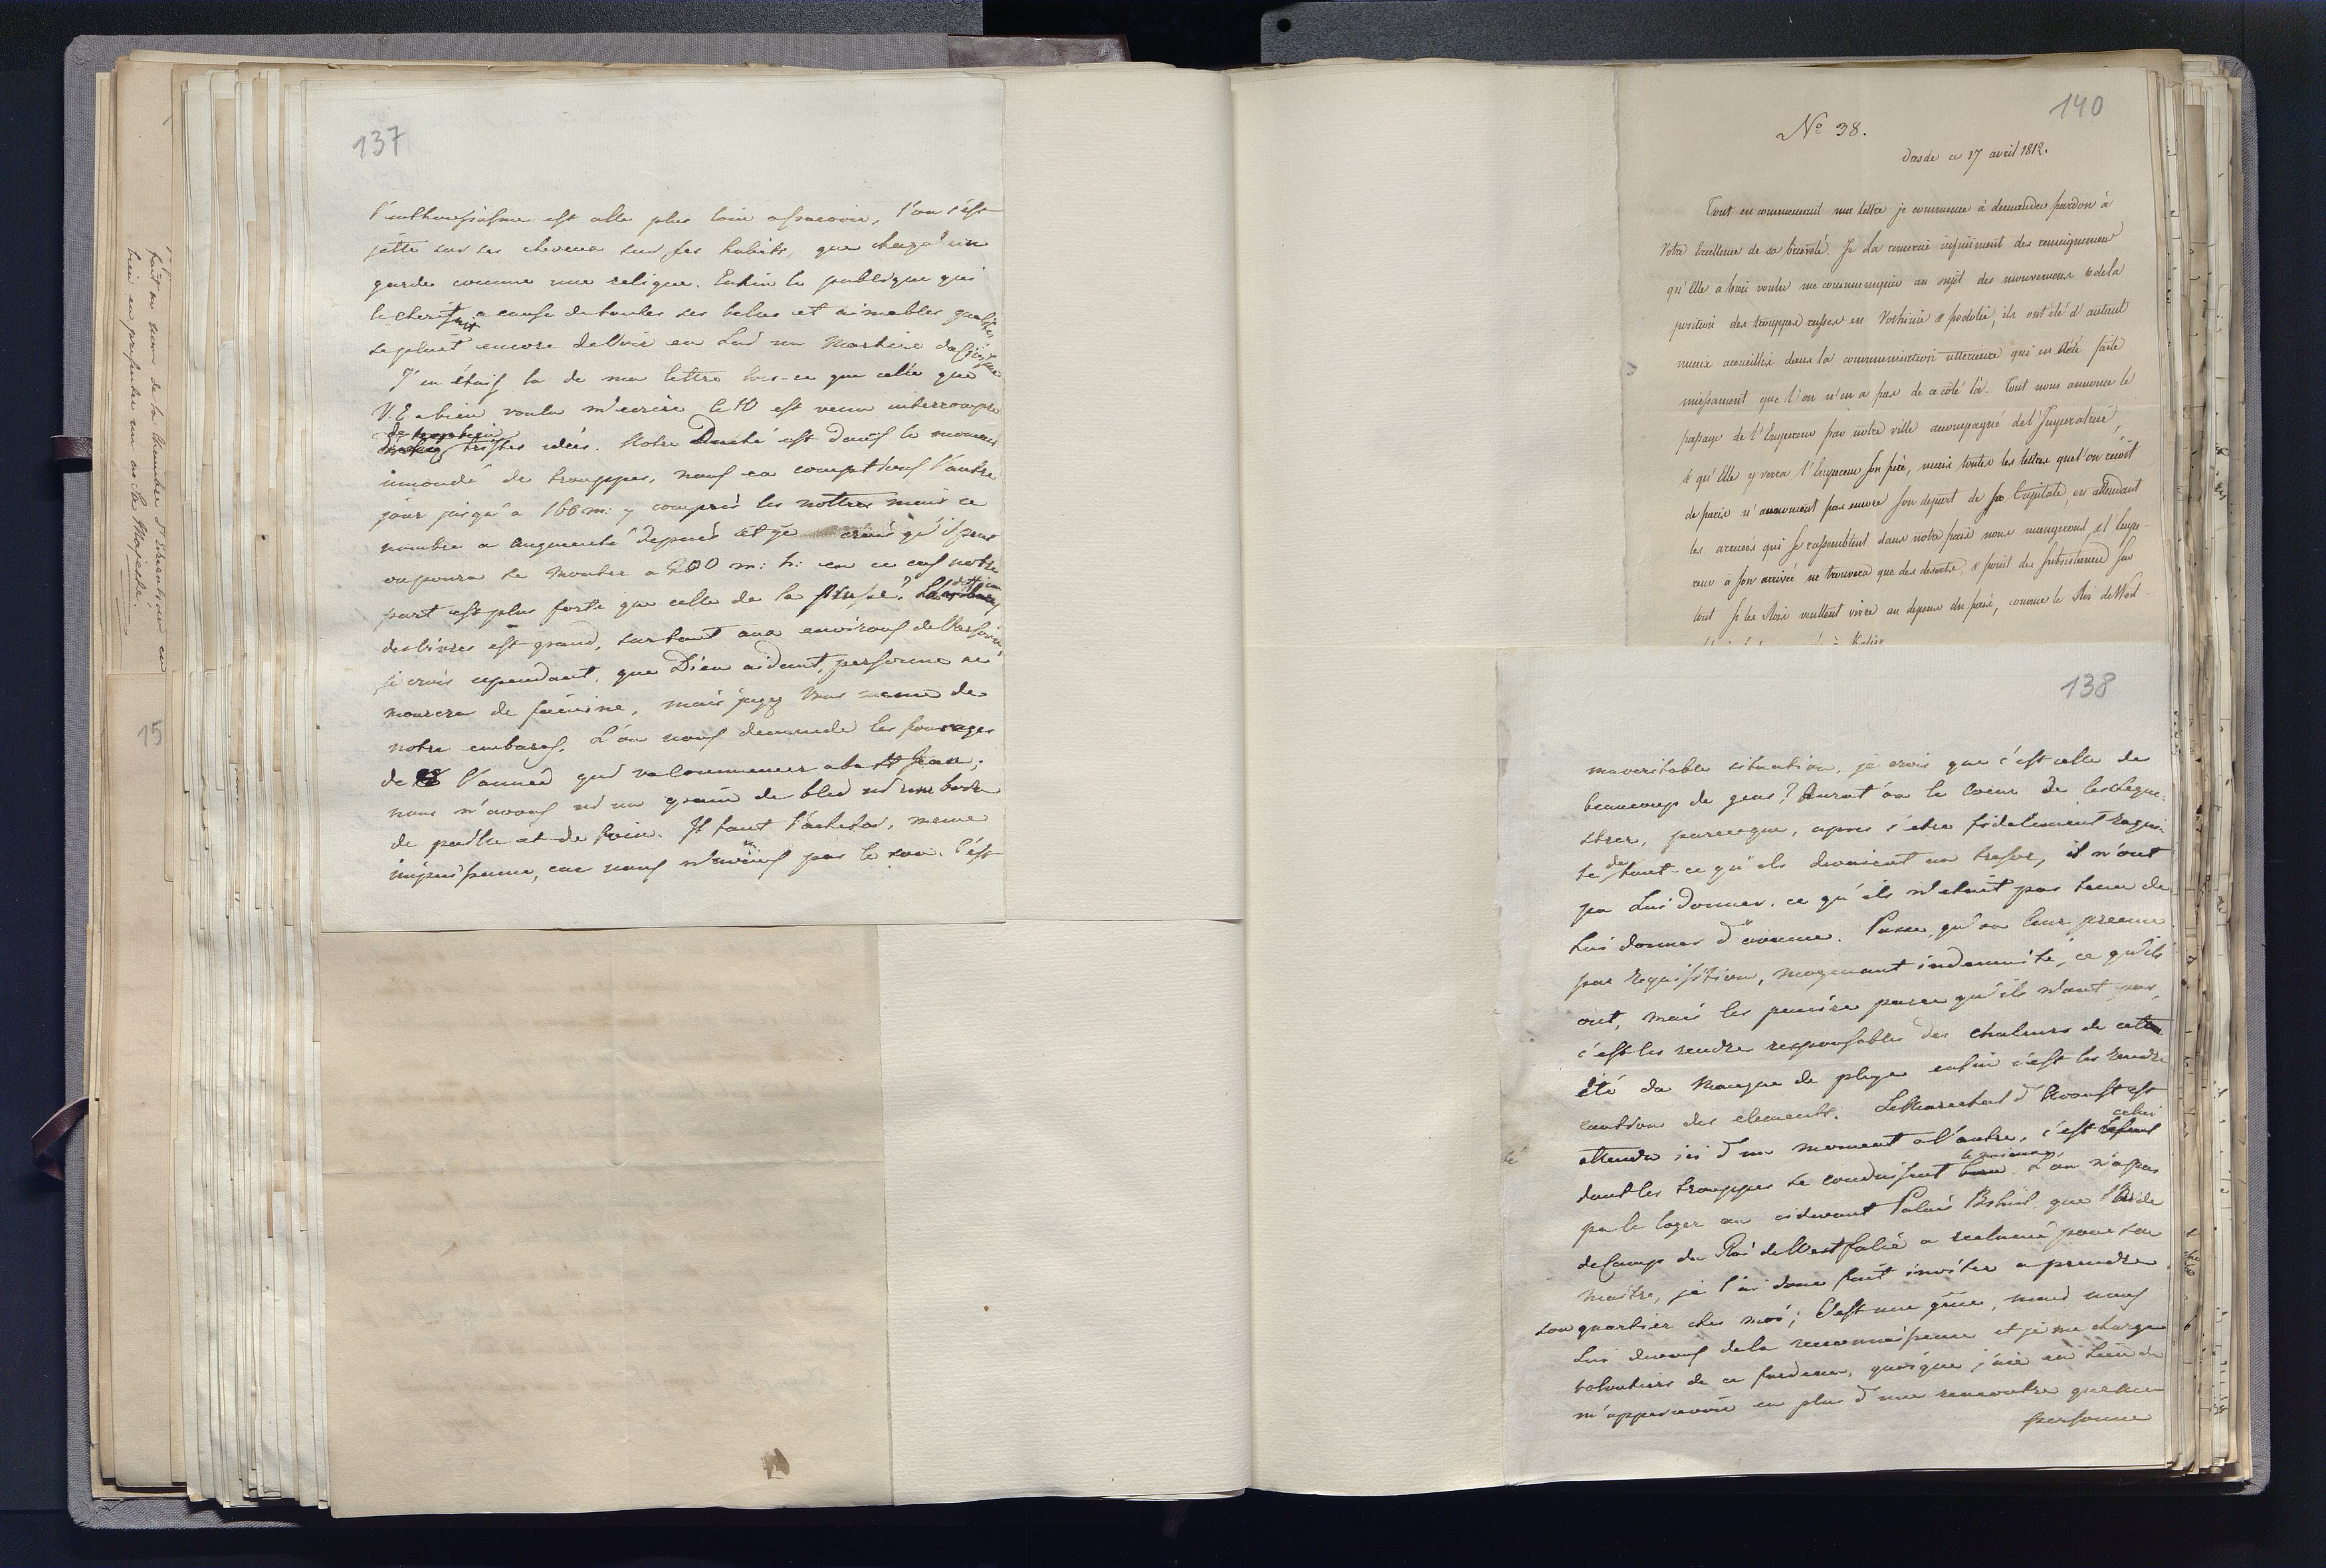 137
l'enthousiasme est alle plus loin apparavoir, l'on s'est
jetté sur ses cheveux sur ses habits, que chaqu'un
garde comme une relique. Enfin le publique qui
le cherissait a cause de toutes ses belles et aimables qualités
se plait encore de voir en Lui un Martire
J'en étais la de ma lettre lors-ce que celle que
V.E a bien voulu m'ecrire le 10 est venu interrompre
tristes idées. Notre Duché est dans le moment
inmondé de trouppes, nous en comptions l'autre
jour jusqu'a 166 m: y compris les nottres mais ce
nombre a augmenté depuis et je crois qu'il peut
ou poura se monter a 200 m: h: en ce cas notre
part est plus forte que celle de la Prusse?
des vivres est grand, surtout aux environs de Varsovie,
je crois cependant, que Dieu aidant, personne ne
mourera de famine, mais jugez Vous meme de
notre embaras. L'on nous demande les fourages
de l'année qui va commencer a la St Jean;
nous n'avons ni un grain de bled ni une botte
de paille et de foin. Il faut l'acheter, meme
impuissance, car nous n'avons pas le sou. C'est
140
No 38.
Dresde ce 17 avril 1812.
Tout en commencant ma lettre je commence à demander pardon à
Votre Excellence de sa brieveté. Je La remercie infiniment des renseignemens
qu'Elle a bien voulu me communiquer au sujet des mouvemens & de la
position des trouppes russes en Volhinie & podolie, ils ont été d'autant
mieux accueillis dans la communication ulterieure qui en a été faite
que l'on n'en a pas de ce côté là. Tout nous annonce le
passage de l'Empereur par nôtre ville accompagné de l'Imperatrice,
& qu'Elle y verra l'Empereur son père, mais toutes les lettres que l'on reçoit
de paris n'annoncent pas encore son depart de sa Capitale, en attendant
les armées qui se rassemblent dans notre païs nous mangeront, et l'Empe-
reur à son arrivée ne trouvera que des deserts, & point des subsistances sur
tout si les Rois veullent vivre au depens du païs, comme le Roi de West-
138
ma veritable situation, je crois que c'est celle de
beaucoup de gens? Aurat'on le coeur de les seque-
strer, parceque, apres s'etre fidelement aqui-
té de tout ce qu'ils devaient au tresor, il n'ont
pu Lui donner, ce qu'ils n'etait pas tenu de
Lui donner d'avance. Passe, qu'on leur prenne
par requisition, moyenant indemnité, ce qu'ils
ont, mais les punir parce qu'ils n'ont pas,
c'est les rendre responsables des chaleurs de cette
été du manque de pluye enfin c'est les rendre
cautions des elements. Le Marechal d'Avoust est
attendu ici d'un moment a l'autre, c'est celui
dont les trouppes se conduisent le mieux. L'on n'a pas
pu le loger au cidevant Palais Brühl que l'Aide
de Camp du Roi de Westfalie a reclamé pour son
maitre, je l'ai donc fait inviter a prendre
son quartier chez moi; C'est une gêne, mais nous
Lui devons de la reconnaissance et je me charge
volontiers de ce fardeau, quoique j'aie eu lieu de
m'appercevoir en plus d'une rencontre que
personne
fait au nom de la Chambre d'
bien en presenter un au Sa Majesté.
15